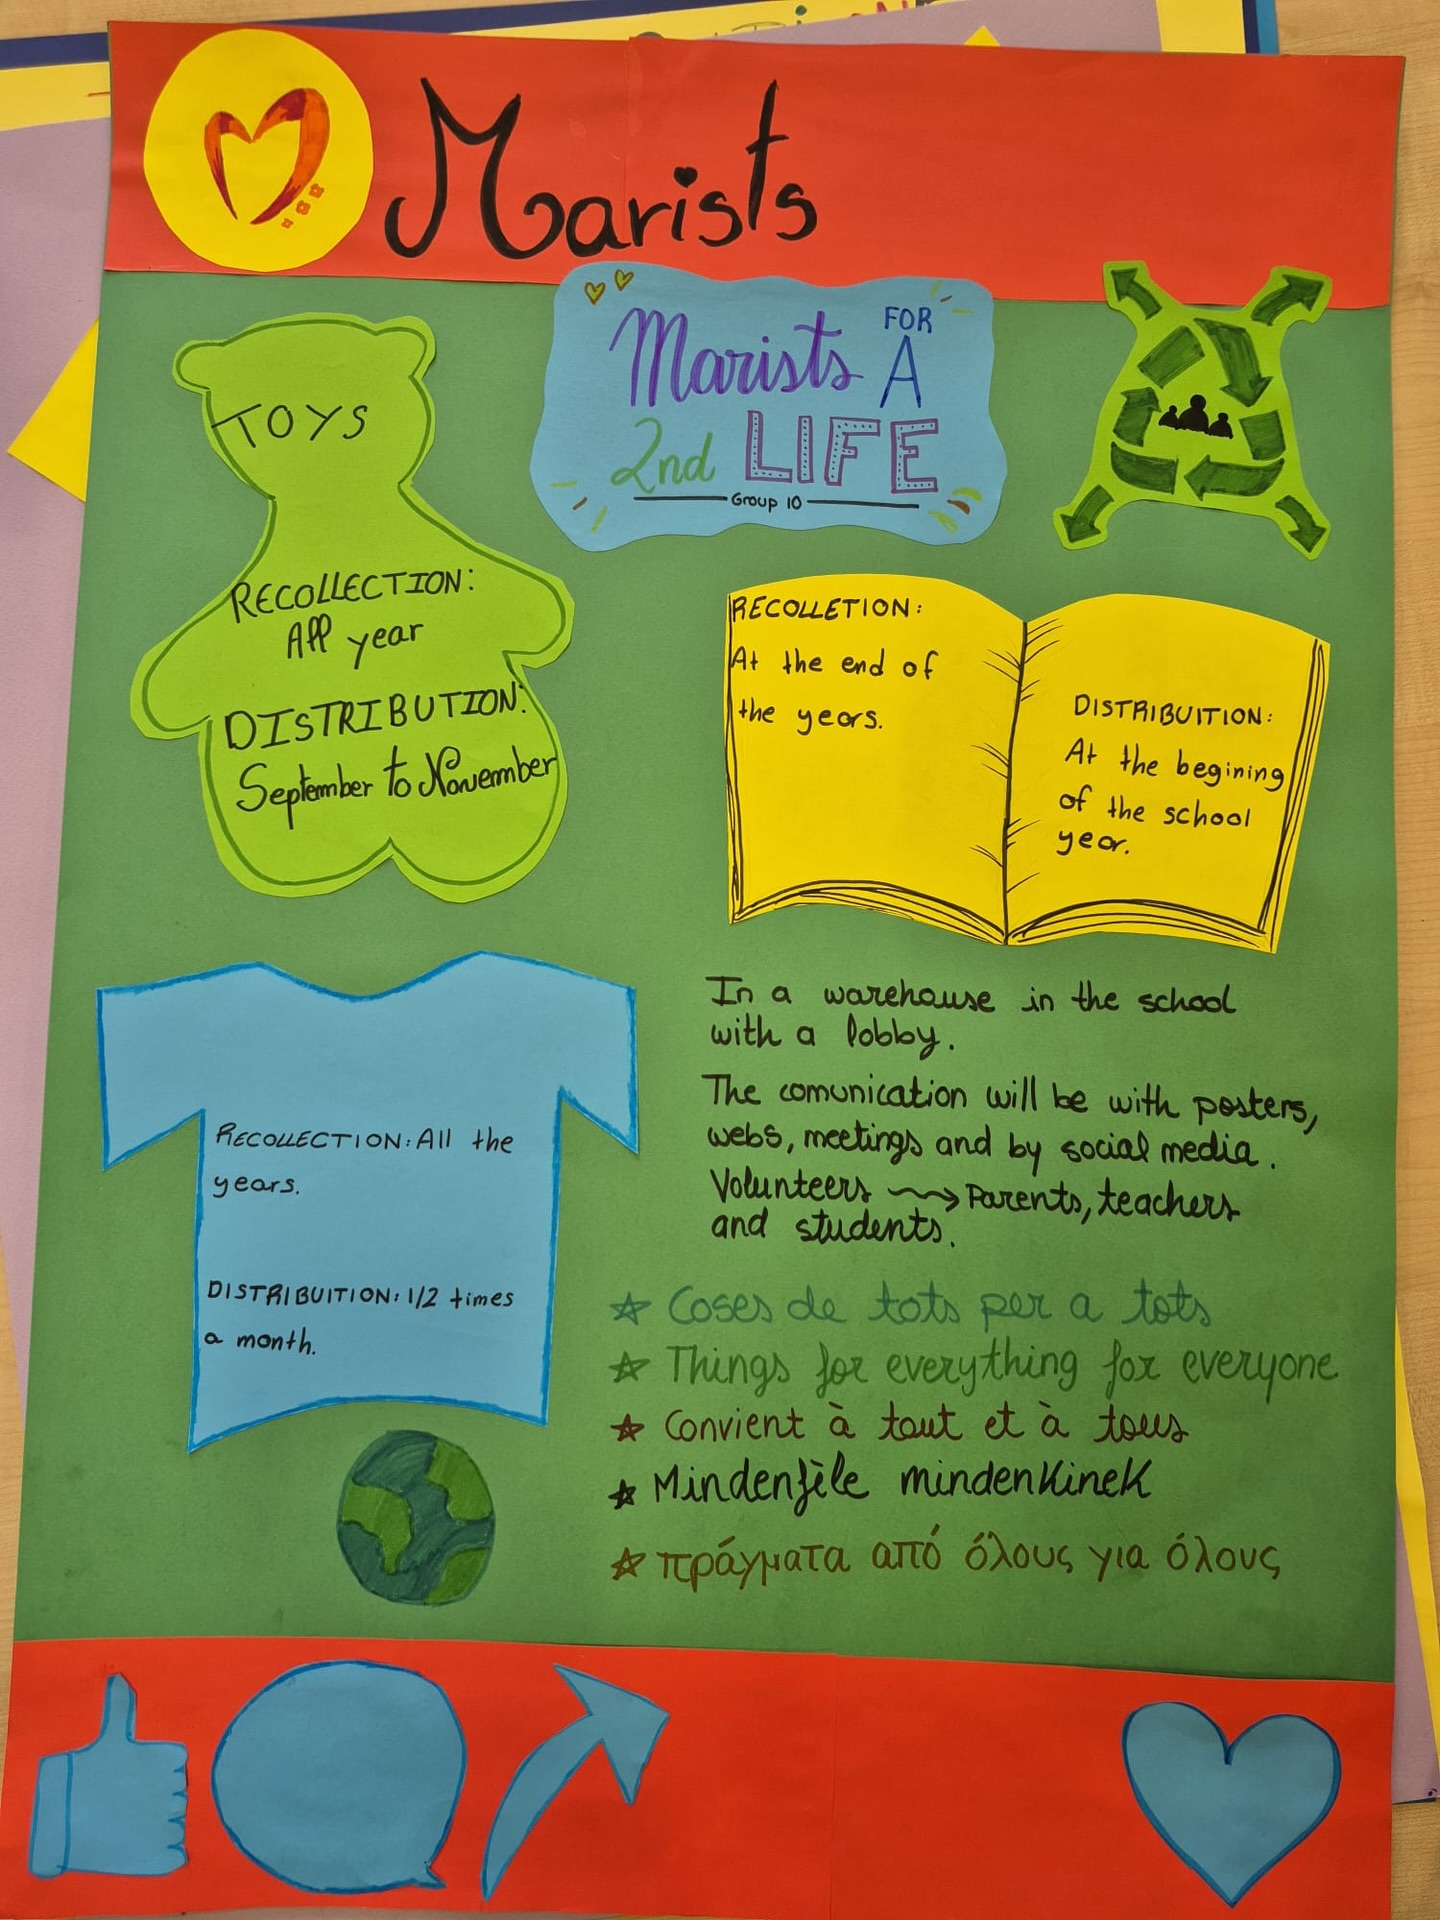 Marists
Marists FOR
A
2nd LIFE
Group 10
TOYS
RECOLLECTION:
All year
DISTRIBUTION:
September to November
RECOLLETION:
At the end of
the years.
DISTRIBUITION:
At the begining
of the school
year.
RECOLLECTION: All the
years.
DISTRIBUITION: 1/2 times
a month.
In a warehouse in the school
with a lobby.
The comunication will be with posters,
webs, meetings and by social media.
Volunteers → Parents, teachers
and students.
☆ Coses de tots per a tots
☆ Things for everything for everyone
☆ Convient à tout et à tous
☆ Mindenféle mindenkinek
☆ πράγματα από όλους για όλους